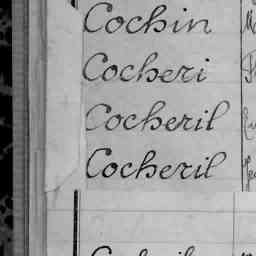 Cochin
Cocheri
Cocheril
Cocheril